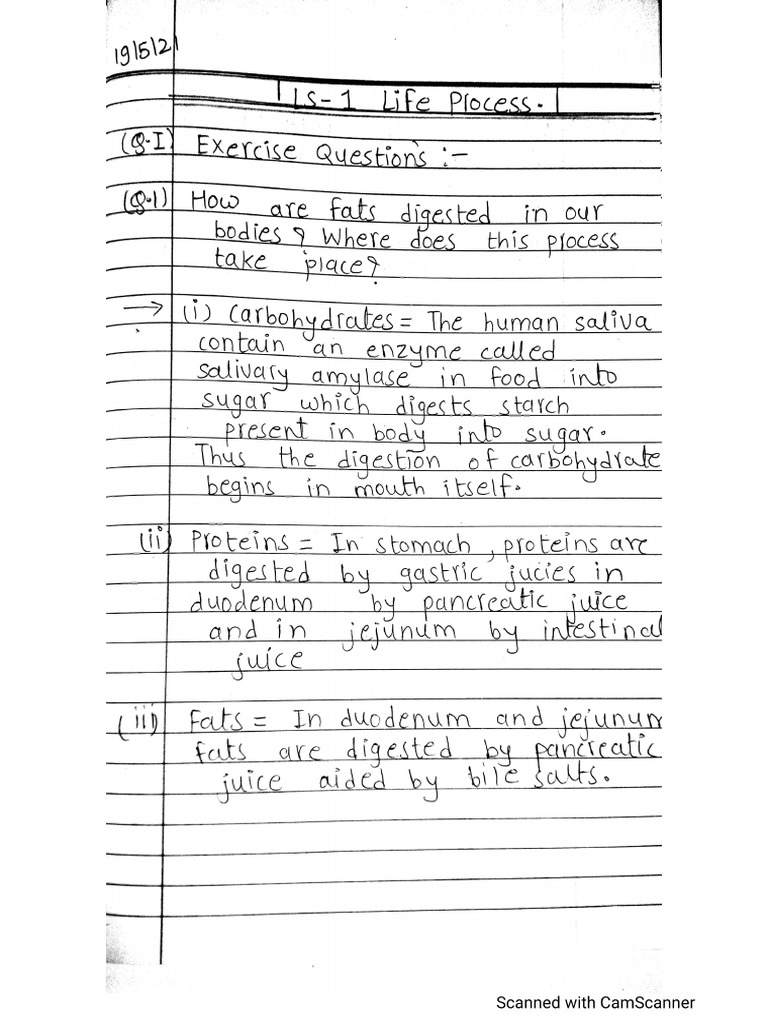 19/5/21
LS-1 Life Process.
(Q.I) Exercise Questions :-
(Q.1) How are fats digested in our
bodies? Where does this process
take place?
→ (i) Carbohydrates = The human saliva
contain an enzyme called
salivary amylase in food into
sugar which digests starch
present in body into sugar.
Thus the digestion of carbohydrate
begins in mouth itself.
(ii) Proteins = In stomach, proteins are
digested by gastric jucies in
duodenum by pancreatic juice
and in jejunum by intestinal
juice
(iii) Fats = In duodenum and jejunum
fats are digested by pancreatic
juice aided by bile salts.
Scanned with CamScanner